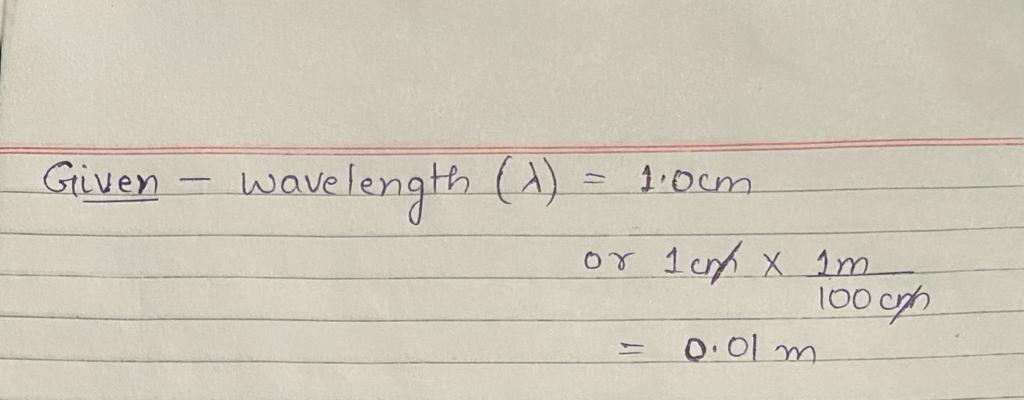 Given - wavelength (λ) = 1.0cm
or 1cm x 1m
100cm
= 0.01 m